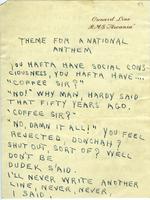 Cunard Line
R.M.S. "Ascania"
THEME FOR A NATIONAL
ANTHEM
YOU HAFTA HAVE SOCIAL CONS-
CIOUSNESS, YOU HAFTA HAVE....
"COFFEE SIR?"
"NO!" WHY MAN! HARDY SAID
THAT FIFTY YEARS AGO,
"COFFEE SIR?"
"NO, DAMN IT ALL!" YOU FEEL
REJECTED DONCHAH?
SHUT OUT, SORT OF? WELL
DON'T BE
DUDEK S'AID.
I'LL NEVER WRITE ANOTHER
LINE, NEVER, NEVER,
I SAID,